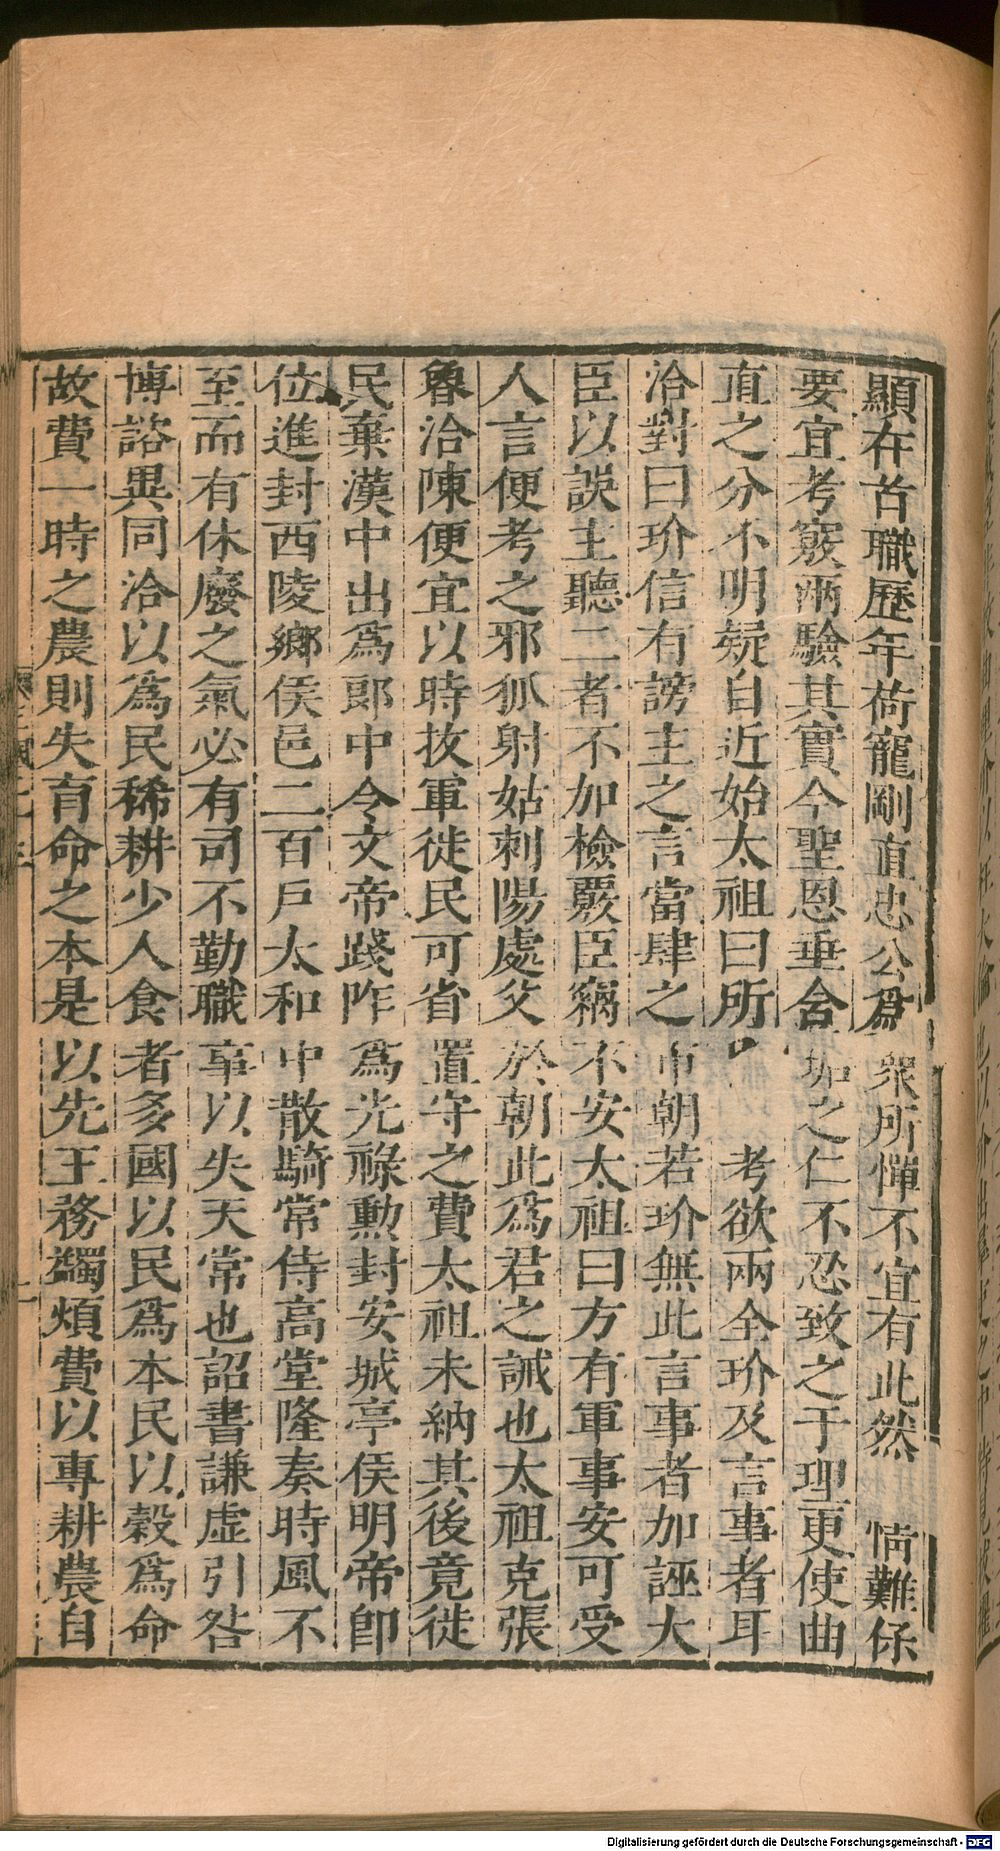 顯在首職歷年荷寵剛直忠公爲衆所憚不宜有此然 情難保
要宜考覈兩驗其實今聖恩垂含垢之仁不忍致之于理更使曲
直之分不明疑自近始太祖曰所 考欲兩全玠及言事者耳
洽對曰玠信有謗主之言當肆之市朝若玠無此言事者加誣大
臣以誤主聽二者不加檢覈臣竊不安太祖曰方有軍事安可受
人言便考之邪狐射姑刺陽處父於朝此爲君之誡也太祖克張
魯洽陳便宜以時拔軍徙民可省置守之費太祖未納其後竟徙
民棄漢中出爲郎中令文帝踐阼爲光祿勳封安城亭侯明帝卽
位進封西陵鄉侯邑二百戶太和中散騎常侍高堂隆奏時風不
至而有休廢之氣必有司不勤職事以失天常也詔書謙虛引咎
博諮異同洽以爲民稀耕少人食者多國以民爲本民以穀爲命
故費一時之農則失育命之本是以先王務蠲煩費以專耕農自
Digitalisierung gefördert durch die Deutsche Forschungsgemeinschaft - DFG